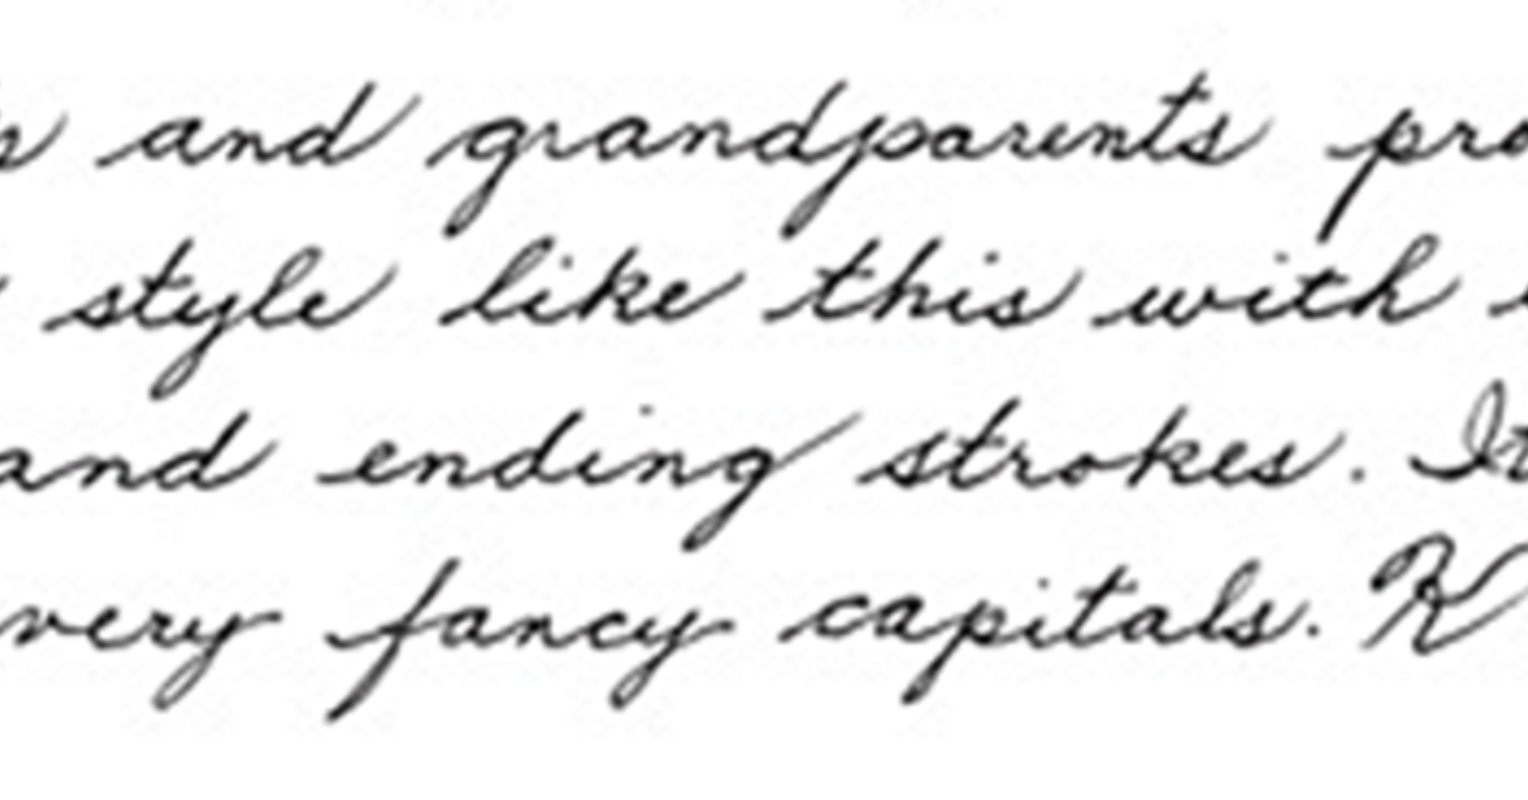 and grandparents
style like this with
and ending strokes. It
very fancy capitals.